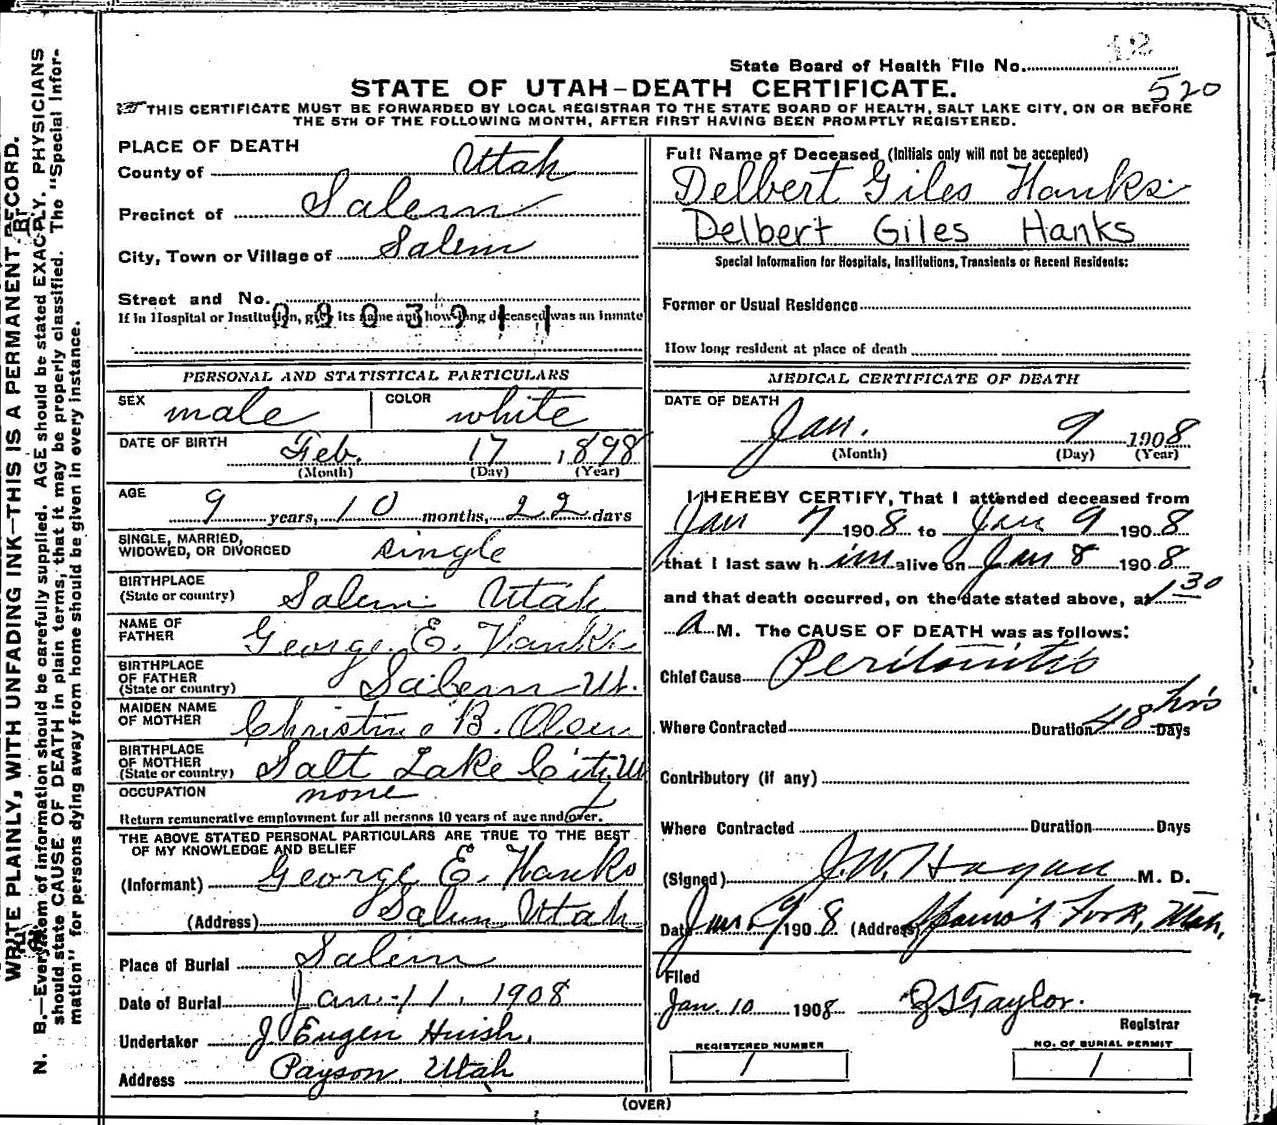 12
State Board of Health File No.
520
STATE OF UTAH-DEATH CERTIFICATE.
THIS CERTIFICATE MUST BE FORWARDED BY LOCAL REGISTRAR TO THE STATE BOARD OF HEALTH, SALT LAKE CITY, ON OR BEFORE
THE 5TH OF THE FOLLOWING MONTH, AFTER FIRST HAVING BEEN PROMPTLY REGISTERED.
WRITE PLAINLY, WITH UNFADING INK—THIS IS A PERMANENT RECORD.
N. B.—Every item of information should be carefully supplied. AGE should be stated EXACTLY. PHYSICIANS
should state CAUSE OF DEATH in plain terms, that it may be properly classified. The "Special Infor-
mation" for persons dying away from home should be given in every instance.
PLACE OF DEATH
County of Utah
Precinct of Salem
City, Town or Village of Salem
Street and No.
If in Hospital or Institution, give its name and how long deceased was an inmate
PERSONAL AND STATISTICAL PARTICULARS
SEX male COLOR white
DATE OF BIRTH Feb. 17 1898
(Month) (Day) (Year)
AGE 9 years, 10 months, 22 days
SINGLE, MARRIED,
WIDOWED, OR DIVORCED single
BIRTHPLACE
(State or country) Salem Utah
NAME OF
FATHER George E. Hanks
BIRTHPLACE
OF FATHER
(State or country) Salem Ut.
MAIDEN NAME
OF MOTHER Christine B. Olsen
BIRTHPLACE
OF MOTHER
(State or country) Salt Lake City U
OCCUPATION none
Return remunerative employment for all persons 10 years of age and over.
THE ABOVE STATED PERSONAL PARTICULARS ARE TRUE TO THE BEST
OF MY KNOWLEDGE AND BELIEF
(Informant) George E. Hanks
(Address) Salem Utah
Place of Burial Salem
Date of Burial Jan. 11, 1908
Undertaker J Eugen Huish,
Address Payson, Utah
Full Name of Deceased (Initials only will not be accepted)
Delbert Giles Hanks
Delbert Giles Hanks
Special Information for Hospitals, Institutions, Transients or Recent Residents:
Former or Usual Residence
How long resident at place of death
MEDICAL CERTIFICATE OF DEATH
DATE OF DEATH
Jan. 9 1908
(Month) (Day) (Year)
I HEREBY CERTIFY, That I attended deceased from
Jan 7 1908 to Jan 9 1908
that I last saw him alive on Jan 8 1908
and that death occurred, on the date stated above, at 1 30
A M. The CAUSE OF DEATH was as follows:
Chief Cause Peritonitis
Where Contracted Duration 48 hrs Days
Contributory (if any)
Where Contracted Duration Days
(Signed) J. W. Hagan M. D.
Date Jan 9 1908 (Address) Spanish Fork, Utah,
Filed
Jan. 10 1908 Taylor.
Registrar
REGISTERED NUMBER
1
NO. OF BURIAL PERMIT
1
(OVER)